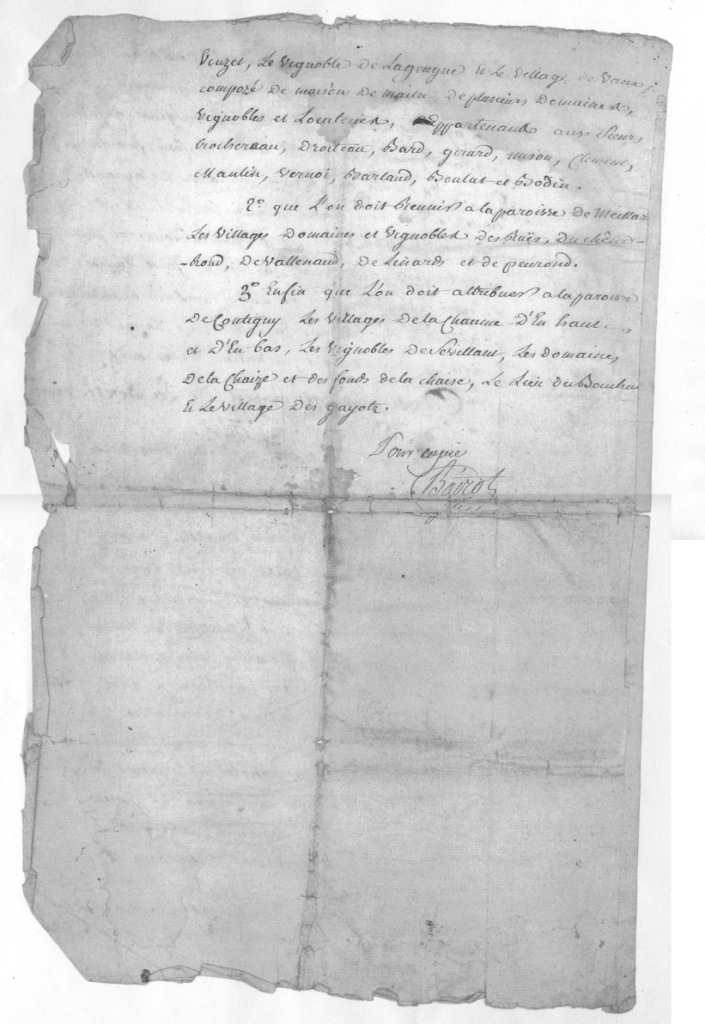 Vinzet, Le Vignoble de Lagengne et Le Village de Vaux,
composé de maison de maitre de plusieurs Domaines,
Vignobles et Locateries, Appartenant aux Sieurs
Rochereau, Droiteau, Bard, girard,
Maulin, Vernoi, Barland, Boulat et Bodin.
2° que L'on doit Reunir a la paroisse de Meillar
Les Villages Domaines et Vignobles des Du chêne
-Rond, de Vallenaud, de Lenards et de peurond.
3° Enfin que L'on doit attribuer a la paroisse
de Contigny Les Villages de la Chaume D'En haut
et D'En bas, Les Vignobles de Sevillant, Les domaines
de la Chaize et des fonds de la chaise, Le Lieu du Bouchat
et Le Village Des gayots.
Pour copie
Boirot